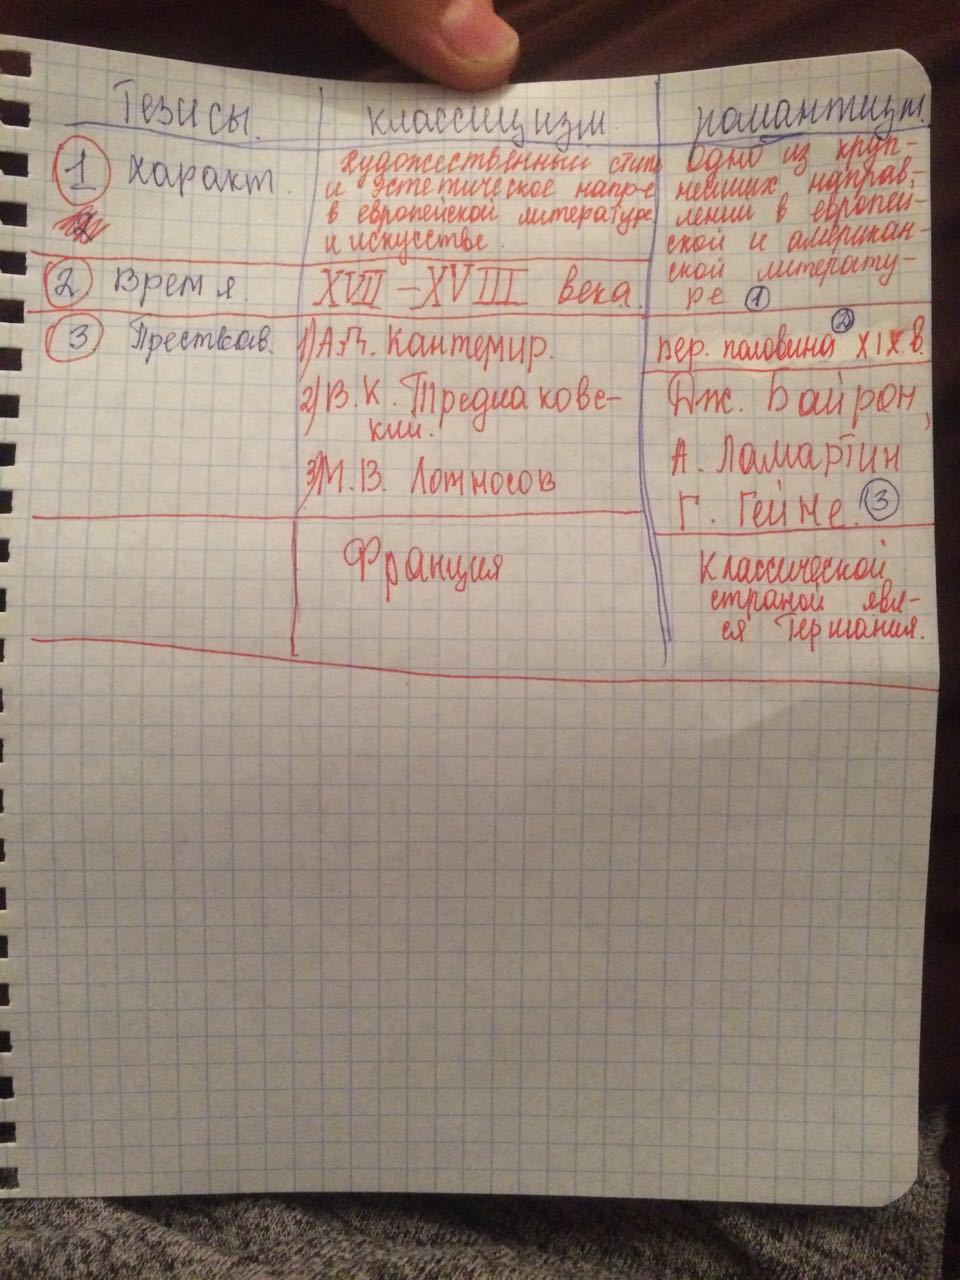 Тезисы.
классицизм.
романтизм.
1 характ.
художественный стиль
и эстетическое напр-е
в европейской литературе
и искусстве.
одно из круп-
нейших направ-
лений в европей-
ской и американ-
ской литерату-
ре 1
2 Время.
XVII - XVIII века.
пер. половина 2 XIX в.
3
1) А.Д. Кантемир.
2) В.К. Тредиаковс-
кий.
3) М.В. Ломоносов
Дж. Байрон,
А. Ламартин
Г. Гейне. 3
Франция
Классической
страной явл-
ся Германия.